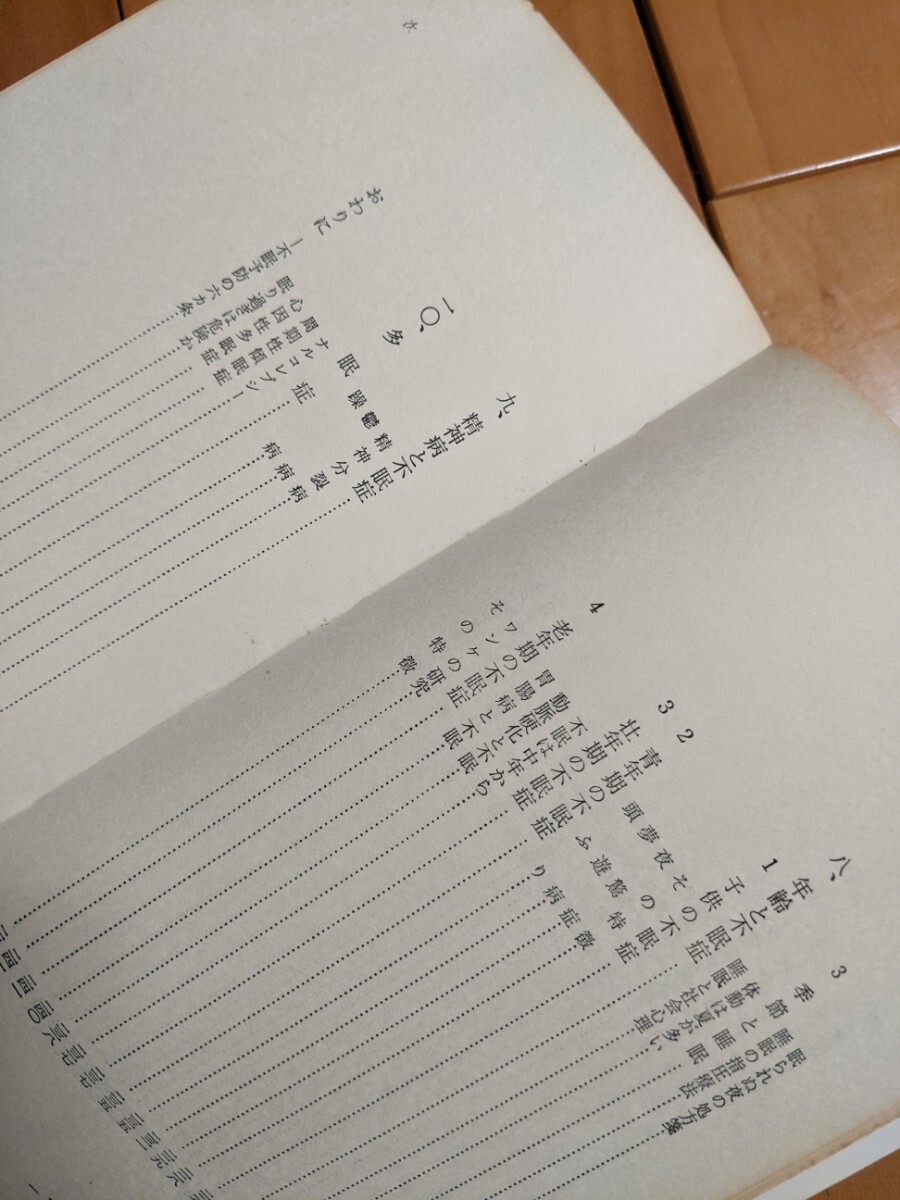 眠られぬ夜の処方箋
睡眠の指圧療法
3 季節と睡眠
睡眠は夏が多い
体動と社会心理
八、年齢と不眠症
1 子供の不眠症
その特徴
夜驚症
夢遊病
頭ふり
2 青年期の不眠症
3 壮年期の不眠症
不眠は中年から
動脈硬化と不眠
胃腸病と不眠
4 老年期の不眠症
ワンケの研究
その特徴
九、精神病と不眠症
精神分裂病
躁鬱病
一〇、多眠症
ナルコレプシー
周期性傾眠症
心因性多眠症
眠り過ぎは危険か
おわりに―不眠予防の六カ条
次